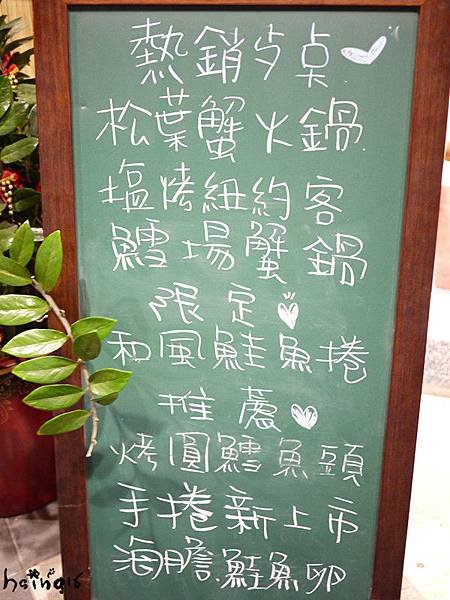 熱銷夕桌
松葉蟹火鍋
塩烤紐約客
鱈場蟹鍋
限定
和風鮭魚捲
推薦
烤圓鱈魚頭
手捲新上市
海膽.鮭魚卵